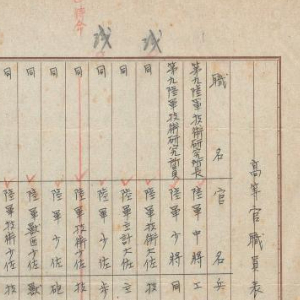 高等官職員表
職名 官名 兵
第九陸軍技術研究所長 陸軍中将 工
第九陸軍技術研究所員 陸軍少将 同
同 陸軍技術大佐 技
同 陸軍主計大佐 主
同 陸軍少佐 歩
同 陸軍技術少佐 技
同 陸軍少佐 砲
同 陸軍獣医少佐 獣
同 陸軍技術少佐 技